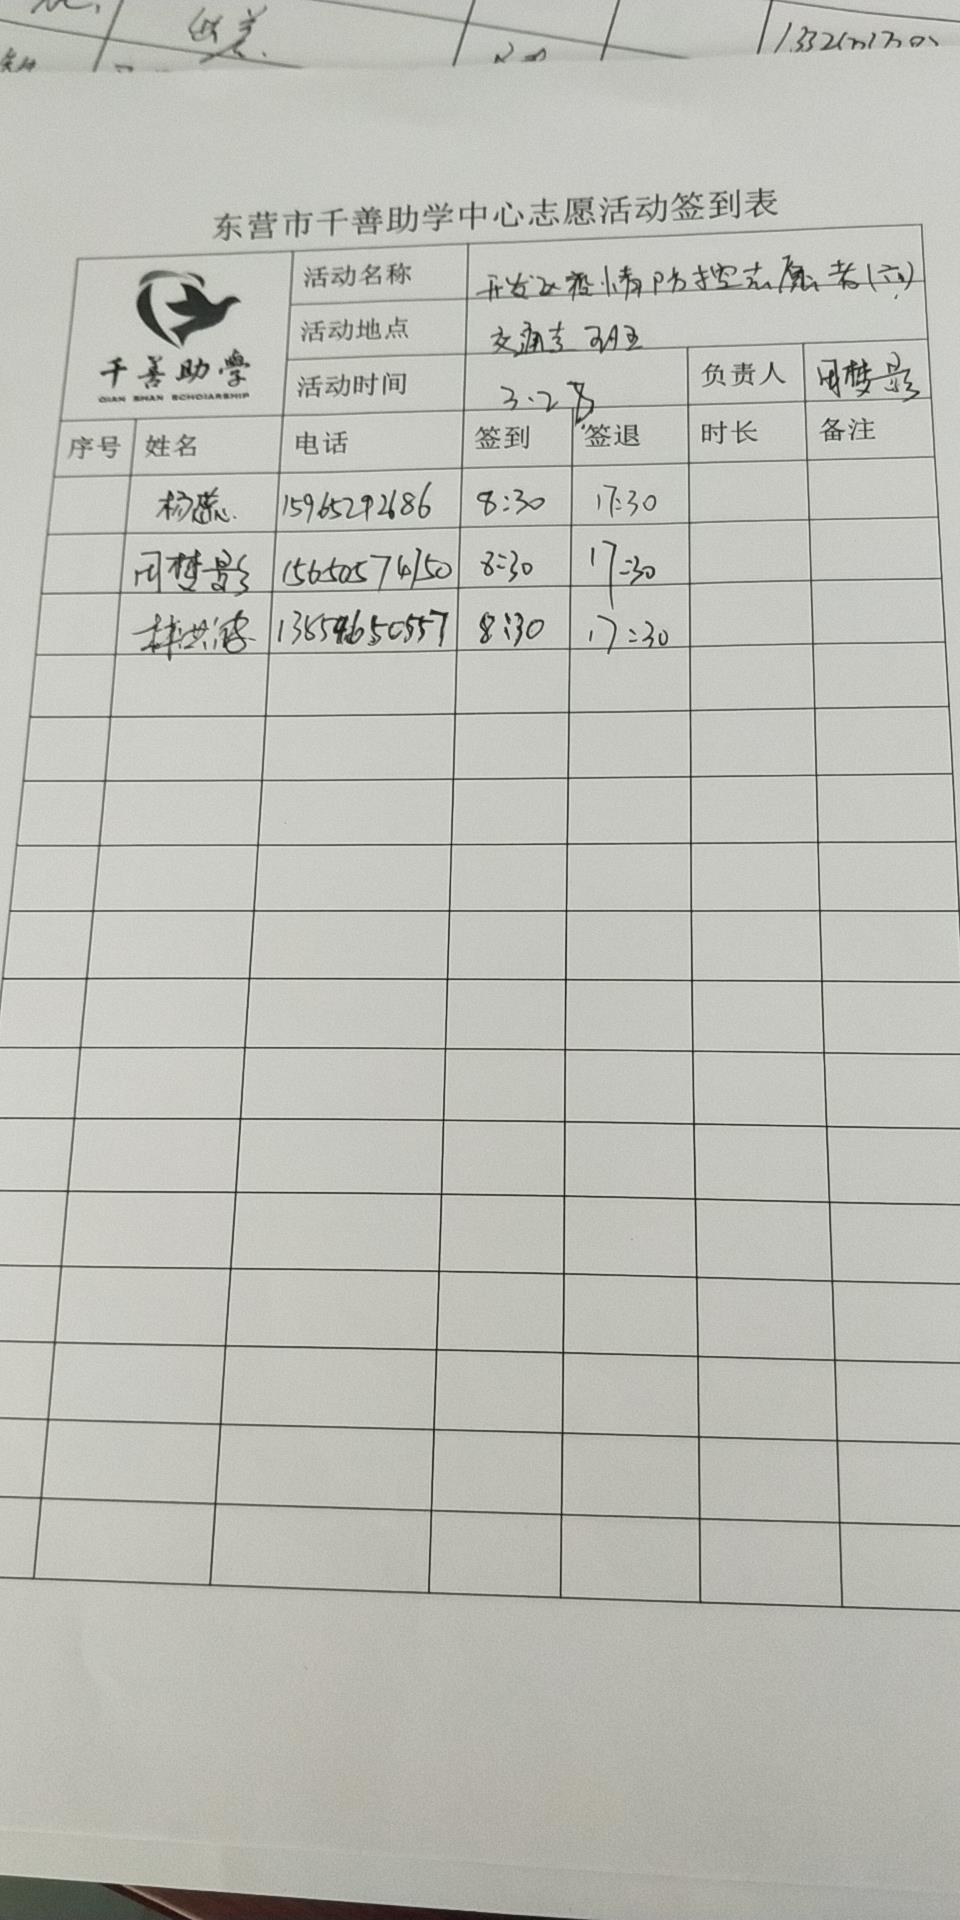 东营市千善助学中心志愿活动签到表
千善助学
QIAN SHAN SCHOLARSHIP
活动名称 开发区疫情防控志愿者(六)
活动地点
活动时间 3.28 负责人 周梦影
序号 姓名 电话 签到 签退 时长 备注
杨蕊 15965292686 8:30 17:30
周梦影 15650574150 8:30 17:30
8:30 17:30